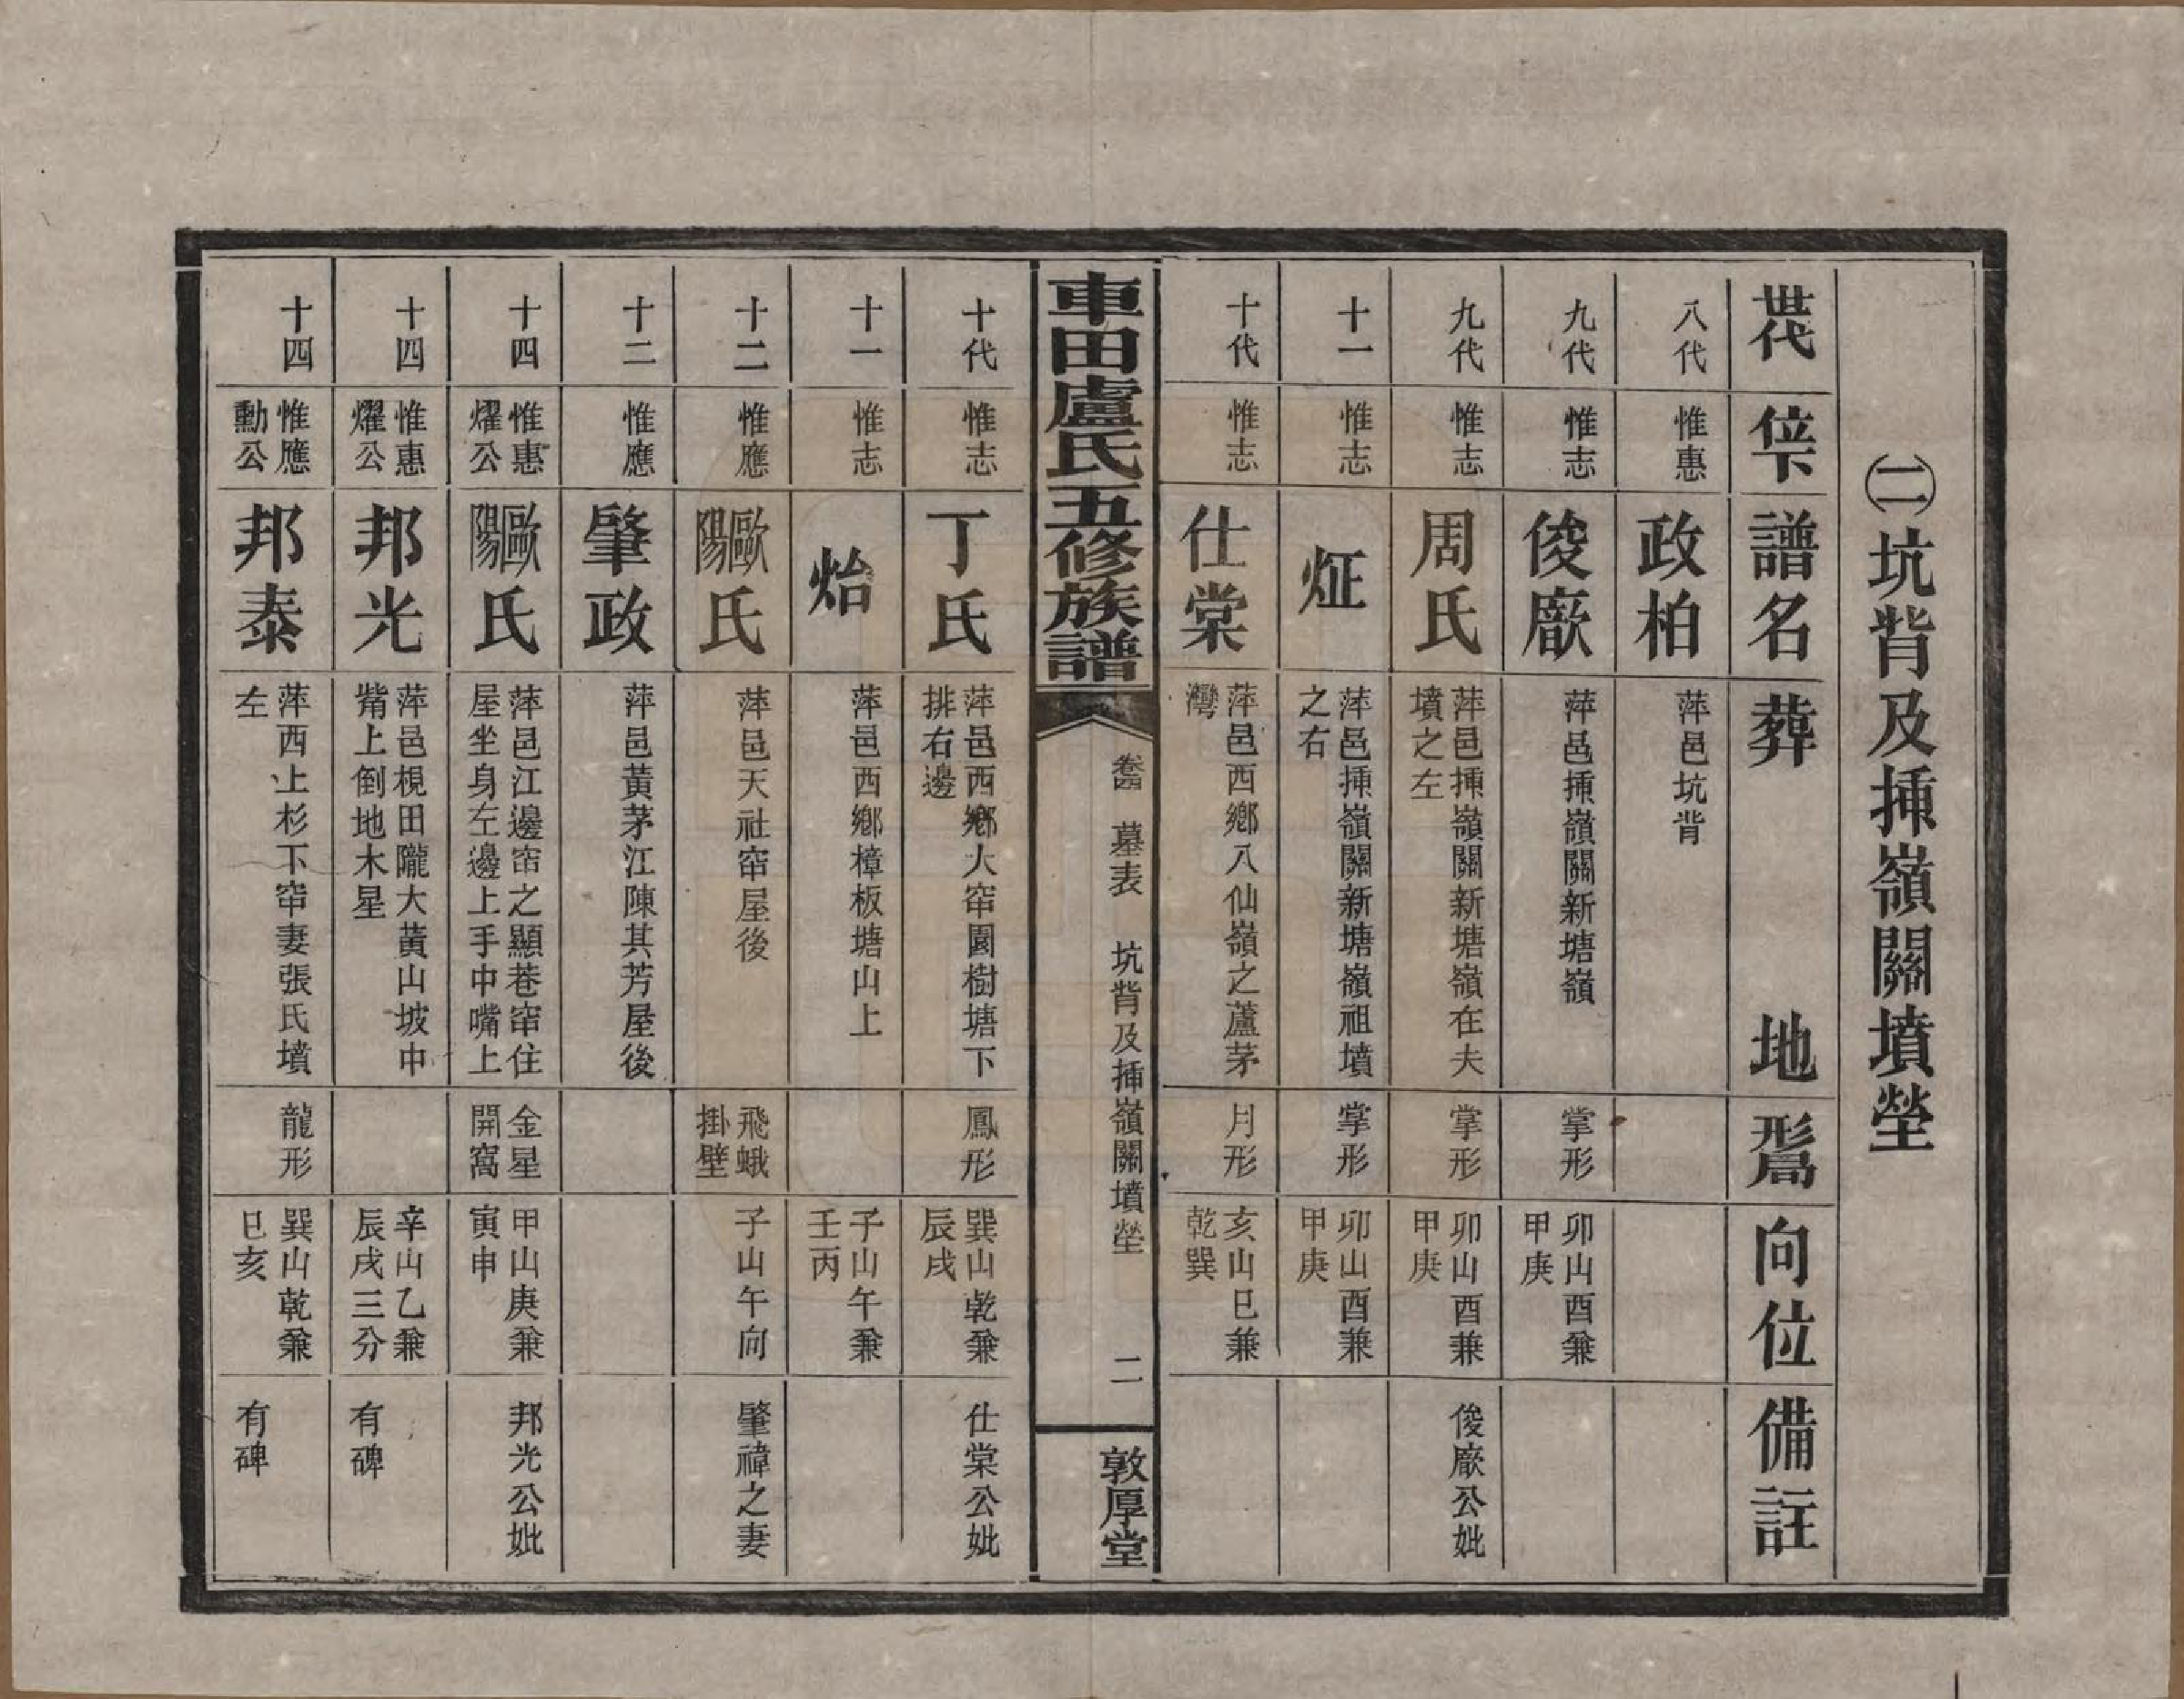 ㈡坑背及揷嶺關墳塋
世代 位下 譜名 葬地 形局 向位 備註
八代 惟惠 政柏 萍邑坑背
九代 惟志 俊廠 萍邑揷嶺關新塘嶺 掌形 卯山酉兼甲庚
九代 惟志 周氏 萍邑揷嶺關新塘嶺在夫墳之左 掌形 卯山酉兼甲庚 俊廠公妣
十一 惟志 炡 萍邑揷嶺關新塘嶺祖墳之右 掌形 卯山酉兼甲庚
十代 惟志 仕棠 萍邑西鄉八仙嶺之蘆茅灣 月形 亥山巳兼乾巽
車田盧氏五修族譜 卷四 墓表 坑背及揷嶺關墳塋 二 敦厚堂
十代 惟志 丁氏 萍邑西鄉大帘園樹塘下排右邊 鳳形 巽山乾兼辰戌 仕棠公妣
十一 惟志 炲 萍邑西鄉樟板塘山上 子山午兼壬丙
十二 惟應 歐陽氏 萍邑天社帘屋後 飛蛾掛壁 子山午向 肇禕之妻
十二 惟應 肇政 萍邑黃茅江陳其芳屋後
十四 惟惠燿公 歐陽氏 萍邑江邊帘之顯巷帘住屋坐身左邊上手中嘴上 金星開窩 甲山庚兼寅申 邦光公妣
十四 惟惠燿公 邦光 萍邑梘田隴大黃山坡中觜上倒地木星 辛山乙兼辰戌三分 有碑
十四 惟應勳公 邦泰 萍西上杉下帘妻張氏墳左 龍形 巽山乾兼巳亥 有碑